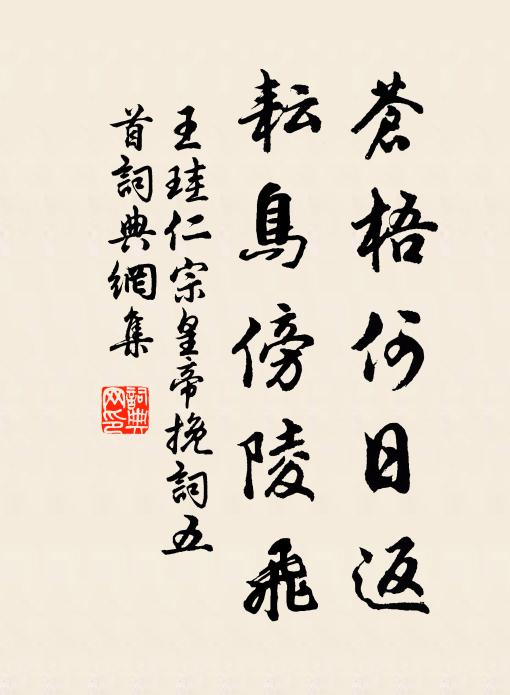 蒼梧何日返
耘鳥傍陵飛
王珪仁宗皇帝挽詞五
首詞典網集
詞典
网印